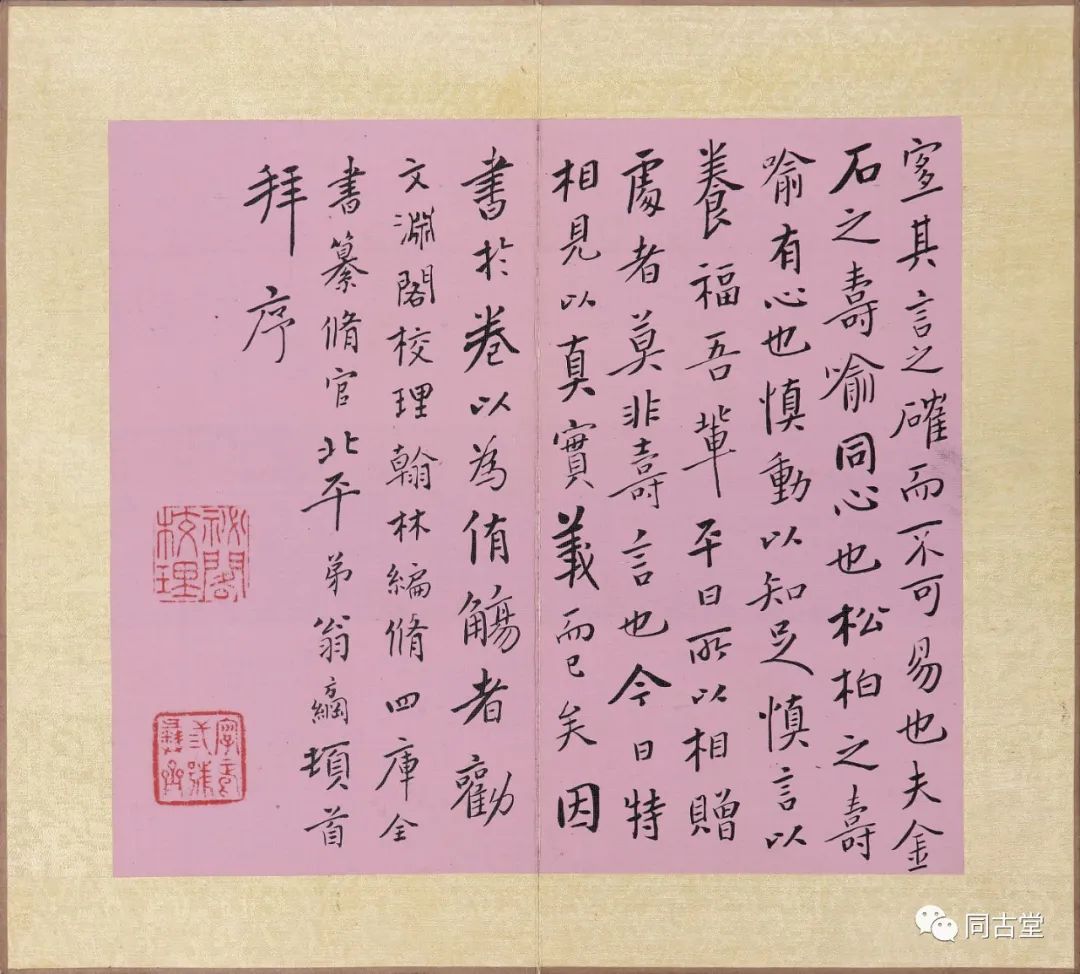 寔其言之確而不可易也夫金
石之壽喻同心也松柏之壽
喻有心也慎動以知足慎言以
養福吾輩平日所以相贈
處者莫非壽言也今日特
相見以真實義而已矣因
書於卷以為侑觴者勸
文淵閣校理翰林編脩四庫全
書纂脩官北平弟翁方綱頓首
拜序
祕閣校理
同古堂